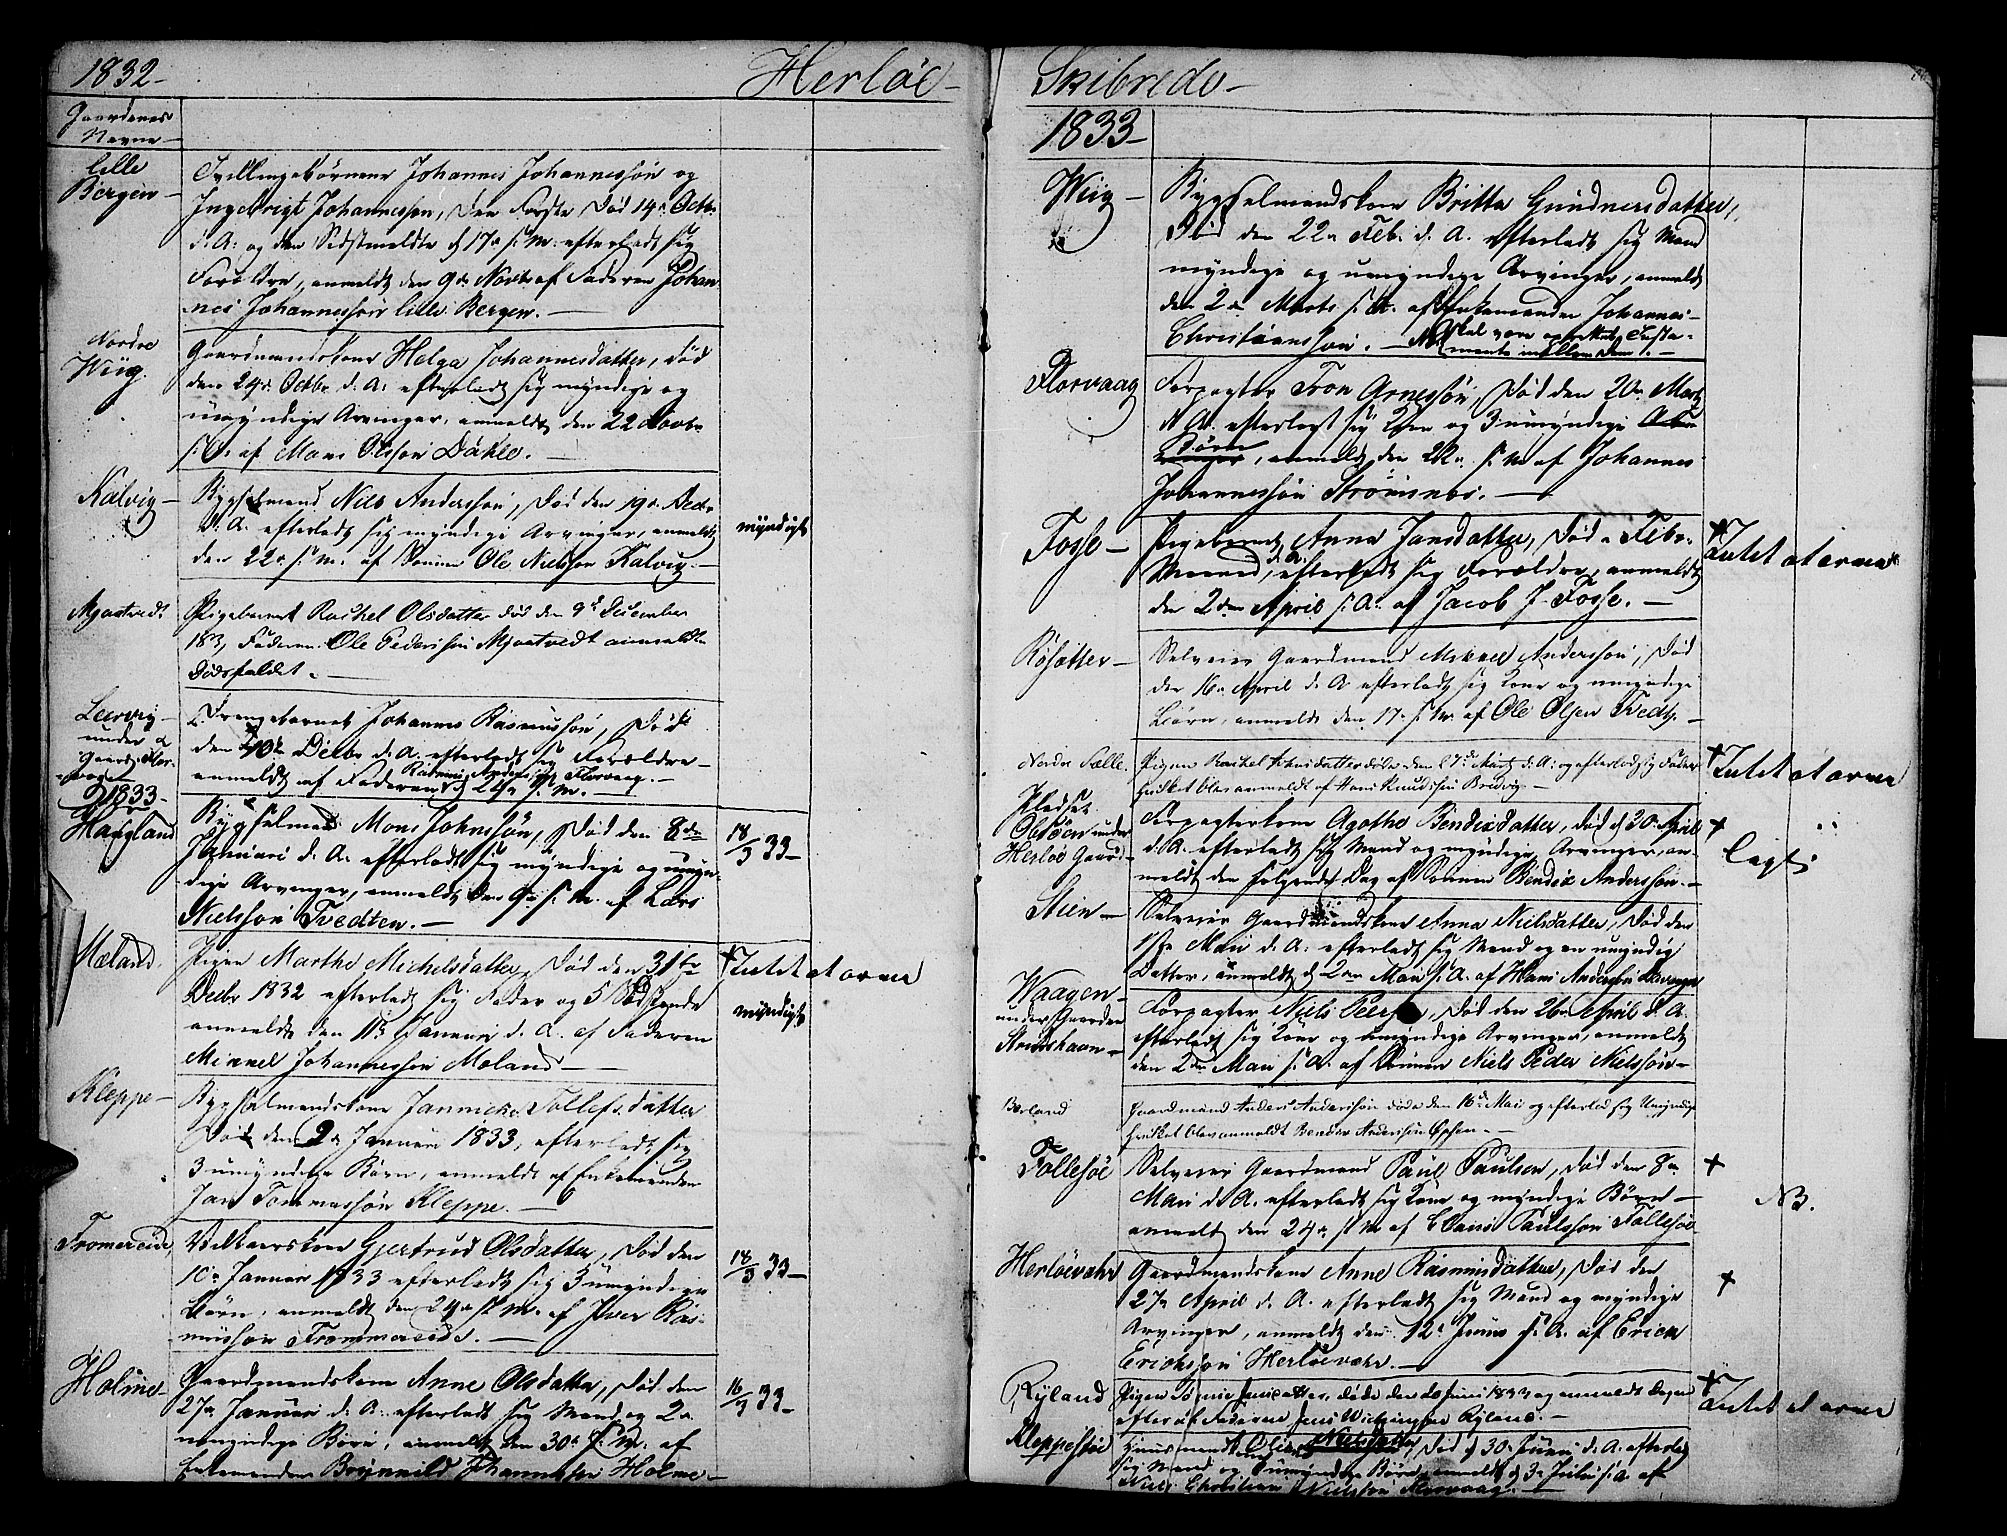 1832 - Herløe -
Gaardenes
Navne -
Lille
Bergen -
Tvillingebørnene Johannes Johannessøn og
Ingebrigt Johannessøn, den Første død 14de Octbr
d. A. og den Sidstmeldte d 17de s. M. efterladt sig
Forældre, anmeldt den 9de Novbr af Faderen Johan
nes Johannessøn Lille Bergen. -
Nordre
Wiig.
Gaardmandskone Helga Johannesdatter, død
den 24de Octbr d. A. efterladt sig myndige og
umyndige Arvinger, anmeldt den 22 Novbr
s. A. af Mons Olsson Dahle. -
Kalvig -
Bygselmand Nils Anderssøn, død den 19de Decbr
d. A. efterladt sig myndige Arvinger, anmeldt
den 22de s. M. af Sønnen Ole Nielssøn Kalvig. -
myndigt
Mjaatvedt
Pigebarnet Rachel Olsdatter død den 9de December
183, Faderen Ole Pedersøn Mjaatvedt anmeldte
Dødsfaldet. -
Leervig -
under
Gaard: Flor-
vaag
Drengebarnet Johannes Rasmussøn, død
den 10de Decbr d. A. efterladt sig Forældre -
anmeldt af Faderen Rasmus Anderssøn Florvaag. -
1833 -
Haugland
Bygselmand Mons Johnssøn, død den 8de
Januari d. A. efterladt sig myndige og umyn-
dige Arvinger, anmeldt den 9de s. M. af Lars
Nielssøn Tvedten. -
18/3 33 -
Mæland.
Pigen Marthe Michelsdatter, død den 31te
Decbr 1832 efterladt sig Fader og 5 Sødskende
anmeldt den 11te Januari d. A. af Faderen
Mikkel Johannessøn Moland -
+ Intet at arve
myndigt
Kleppe -
Bygselmandskone Jannicke Tollefsdatter
død den 2de Januari 1833, efterladt sig
3 umyndige Børn, anmeldt af Enkemanden
Jan Tommassøn Kleppe. -
Fromereide,
Gjertrud Olsdatter, død den
10de Januar 1833 efterladt sig 3 umyndige
Børn, anmeldt den 24de s. M. af Iver Ras-
mussøn Frommereide. -
18/3 33 -
Holme -
Gaardmandskone Anne Olsdatter, død den
27de Januari d. A. efterladt sig Mand og 2de
umyndige Børn, anmeldt den 30te s. M. af
Enkemanden Brynnild Johannessøn Holme -
16/3 33 -
Skibrede -
1833 -
Wiig -
Bygselmandskone Britta Gundnersdatter,
død den 22de Feb. d. A. efterladt sig Mand
myndige og umyndige Arvinger, anmeldt
den 2den Marts s. A. af Enkemanden Johannes
Christiansson. - NB skal være oprettet Testa-
mente imellem dem. -
Florvaag
Forpagter Tron Arnessøn, død den 20de Marts
d. A. efterladt sig Kone og 3 umyndige
Børn, anmeldt den 22de s. M. af Johannes
Johannessøn Strømsnes. -
Fosse -
Pigebarnet Anna Jansdatter, død i Febr.
Maaned d. A., efterladt sig Forældre, anmeldt
den 2den April s. A. af Jacob J. Fosse. -
+ Intet at arve
Røsætter -
Selveier Gaardmand Mikael Anderssøn, død
den 16de April d. A. efterladt sig Kone og umyndige
Børn, anmeldt den 17de s. M. af Ole Olsen Tvedt. -
Nordre Sælle.
Pigen Rachel døde den 7de Marts d. A. og efterlod sig Fader
hvilket blev anmeldt af Hans Knudssøn Bredvig. -
+ Intet at arve
Pladset
Olsøen under
Herløe Gaard -
Forpagterkone Agathe Bendixdatter, død d 30 April
d. A. efterladt sig Mand og myndige Arvinger, an-
meldt den følgende Dag af Sønnen Bendix Anderssøn. -
+
Stien -
Selveier Gaardmandskone Anna Nielsdatter, død den
1ste Mai d. A. efterladt sig Mand og en umyndig
Datter, anmeldt d 2den Mai s. A. af Hans Anderssøn
Waagen -
under Gaarden
Strudshavn -
Forpagter Niels Peers, død den 26de April d. A.
efterladt sig Kone og umyndige Arvinger, anmeldt
den 2den Mai s. A. af Sønnen Niels Peder Nielssøn -
Børland
Gaardmand Anders Anderssøn døde den 16de Mai og efterlod sig Umyndige
hvilket blev anmeldt Bendix Anderssøn -
Follesøe
Selveier Gaardmand Paul Paulsen, død den 8de
Mai d. A. efterladt sig Kone og myndige Børn -
anmelt den 24de s. M af Claus Paulsson Follesøe
+
NB.
Herløevahr
Gaardmandskone Anne Rasmusdatter, død den
27de April d. A. efterladt sig Mand og myndige
Arvinger, anmeldt den 12te Junii s. A. af Erich
Erichssøn Herløevahr. -
+
Ryland
Pigen døde den Juni 1833 og anmeldt Dagen
efter af Faderen Jens Ryland. -
+ Intet at arve
Kleppesøe
Nielsdatter, død d 30 Junii d. A. efterladt
sig Mand og umyndige Børn, anmeldt d 3de Julii s. A. af
Niels Christian Nielssøn Florvaag. -